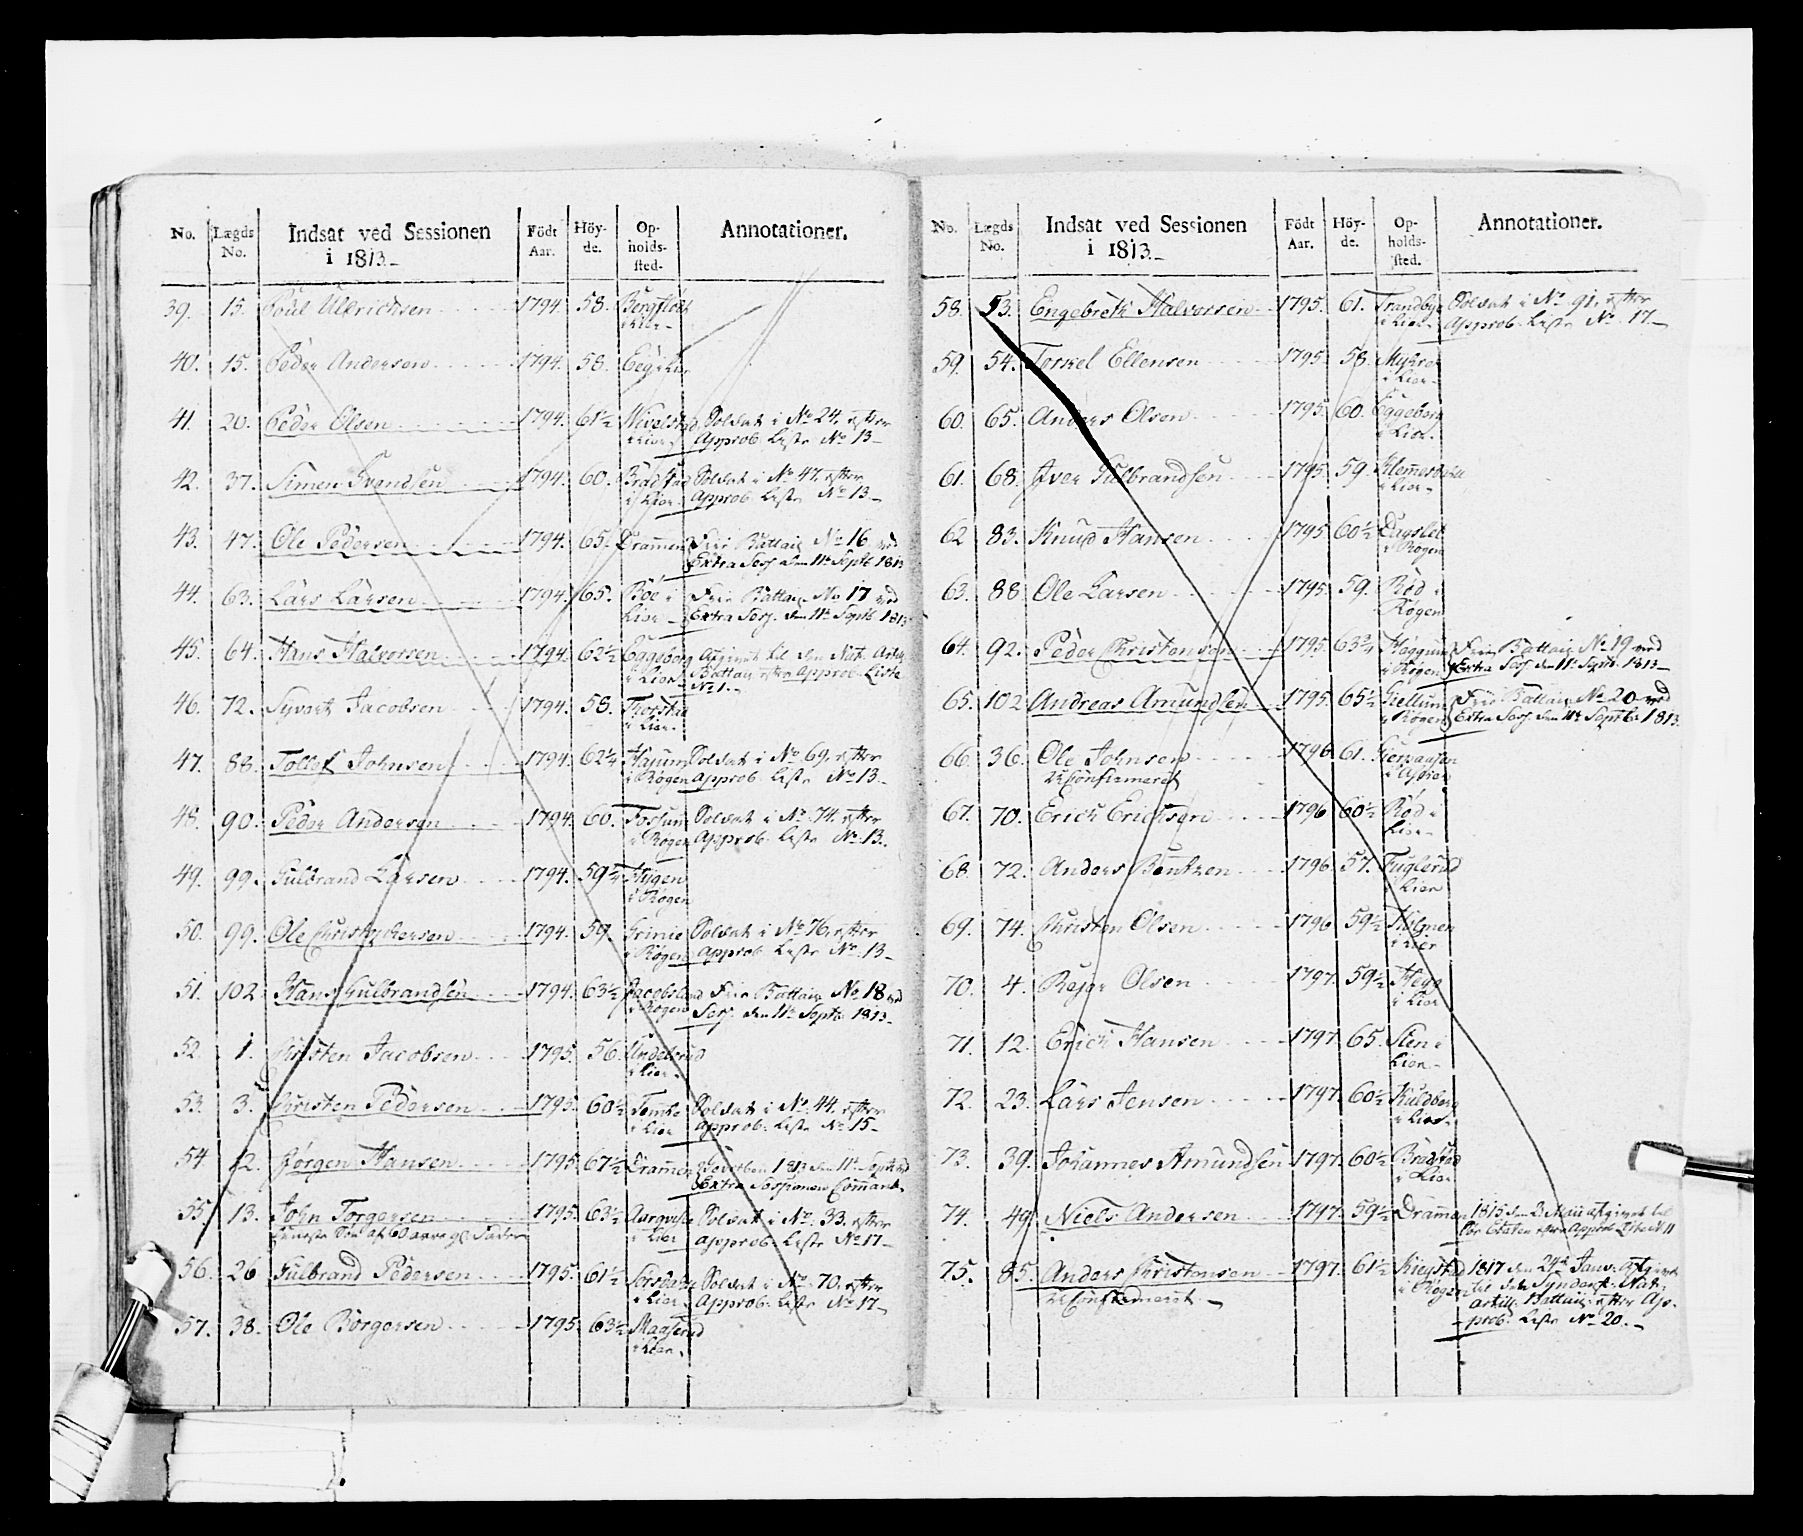 No. Lægds No. Indsat ved Sessionen i 1813. Födt Aar. Höy-de. Op-holds-sted. Annotationer.
39. 15. Poul Ullrichsen 1794. 58. i Lier
40. 15. Peder Andersen 1794. 58.
41. 20. Peder Olsen 1794. 61½ i Lier Soldat i No 24, efter
Approb. Liste No 13
42. 37. Simen Svendsen 1794. 60. i Lier Soldat i No 47. efter
Approb. Liste No 13
43. 47. Ole Pedersen 1794. 65. Drammen Friv. Battail. No 16 ved
Extra Sess. den 11te Septb 1813
44. 63. Lars Larsen 1794. 65. Böe i Friv. Battail. No 17 ved
Lier Extra Sess. den 11te Septb 1813
45. 64. Hans Halvorsen 1794. 62½ Eggeberg Afgivet til den Nat. Artil.
i Lier Battail. efter Approb. Liste
No 1.
46. 72. Syvert Jacobsen 1794. 58.
i Lier
47. 88. Tollef Johnsen 1794. 62¼ Soldat i No 69, efter
i Røgen Approb. Liste No 13
48. 90. Peder Andersen 1794. 60. Fossum Soldat i No 74. efter
i Røgen Approb. Liste No 13.
49. 99. Gulbrand Larsen 1794. Hygen
i Røgen
50. 99. Ole Christophersen 1794. 59 Grinie Soldat i No 76, efter
i Røgen Approb. Liste No 13
51. 102 Hans Gulbrandsen 1794. 63½ Jacobsland Friv. Battail. No 18 ved
i Røgen Sess. den 11te Septb 1813
52. 1. Christen Jacobsen 1795. 56.
i Lier
53. 3. Christen Pedersen 1795. 60½ Soldat i No 44. efter
i Lier Approb. Liste No 15
54 12. Jørgen Hansen 1795. 67½ Drammen 1813 den 11te Septb ved
Extra Sessionen
55. 13. John Torgersen 1795. 63½ Soldat i No 33. efter
Eeneste Søn af 60 aars gl. Fader i Lier Approb. Liste No 17
56. 26 Gulbrand Pedersen 1795. 61½ Soldat i No 70. efter
i Lier Approb. Liste No 17
57. 38. Ole Börgersen 1795. 63½ Maaserud
i Lier
No. Lægds No. Indsat ved Sessionen i 1813. Födt Aar. Höy-de. Op-holds-sted. Annotationer.
58. 53. Engebreth Halvorsen 1795. 61. Trandbye Soldat i No 91, efter
i Lier Approb. Liste No 17.
59. 54. Torkel Ellensen 1795. 58.
i Lier
60. 65. Anders Olsen 1795. 60. Eggeberg
i Lier
61. 68. Iver Gulbrandsen 1795. 59.
i Lier
62 83. Knud Hansen 1795 60½ Dagslet
i Røgen
63. 88 Ole Larsen 1795. 59. Rød i
Røgen
64. 92. Peder Christensen 1795. 63¾ Friv. Battail. No 19 ved
i Røgen Extra Sess. den 11te Septb. 1813
65. 102 Andreas Amundsen 1795. 65½ Friv. Battail. No 20 ved
i Røgen Extra Sess. den 11te Septbr 1813.
66. 36. Ole Johnsen 1796 61.
uConfirmeret
67. 70. Erich Erichsen 1796 60½ Rød i
Lier
68. 72. Anders Bentzen 1796 57. Fuglerud
i Lier
69. 74. Christen Olsen 1796 59½
i Lier
70. 4. Rejer Olsen 1797. 59½ Hegg
i Lier
71. 12. Erich Hansen 1797 65. Sten i
Lier
72. 23. Lars Jensen 1797. 60½
i Lier
73. 39. Johannes Amundsen 1797. 60½
i Lier
74. 49. Niels Andersen 1797. 59½ Drammen 1815 den 2 Mai afgivet til
Søe Etaten efter Approb. Liste No 11
75. 85. Anders Christensen 1797. 61½ 1817 den 24de Janv. Afgivet
uConfirmeret i Røgen til det Nat.
Artill. Battail. efter Ap-
prob. Liste No 20.